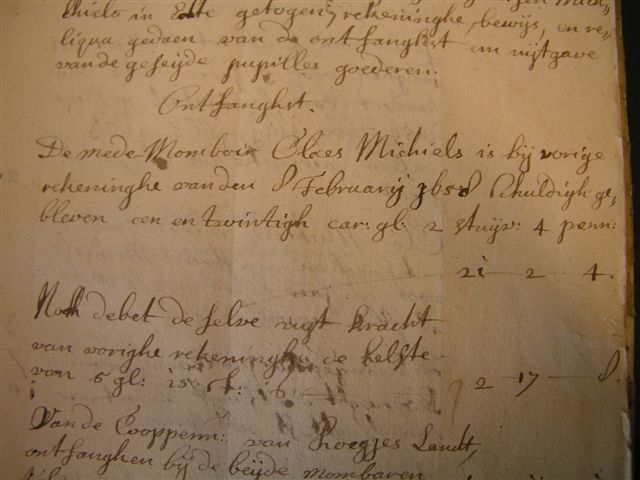 chiels in Echte getogen, rekeninghe, bewijs, en re„
liqua gedaen van de ontfanghst en uijtgave
vande geseijde pupilles goederen.
Ontfanghst.
De mede Momboir Claes Michiels is bij vorige
rekeninghe van den 8 Februarij schuldigh ge„
bleven een en twintigh car: gl: 2 stuijv: 4 penn:
21 — 2 — 4.
Noch debet de selve uijt kracht
van vorighe rekeninghe de helfte
van 5 gl: 15 st:
2 — 17 — 8.
Vande Cooppenn: van Landt,
ontfanghen bij de beijde mombaren